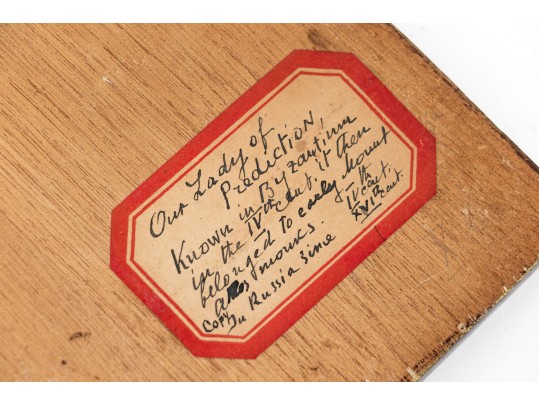 Our Lady of
Prediction,
Known in Byzantium
in the IVth cent. it then
belonged to early Mount
monks. IVth cent.
Copy In Russia since XVIth cent.